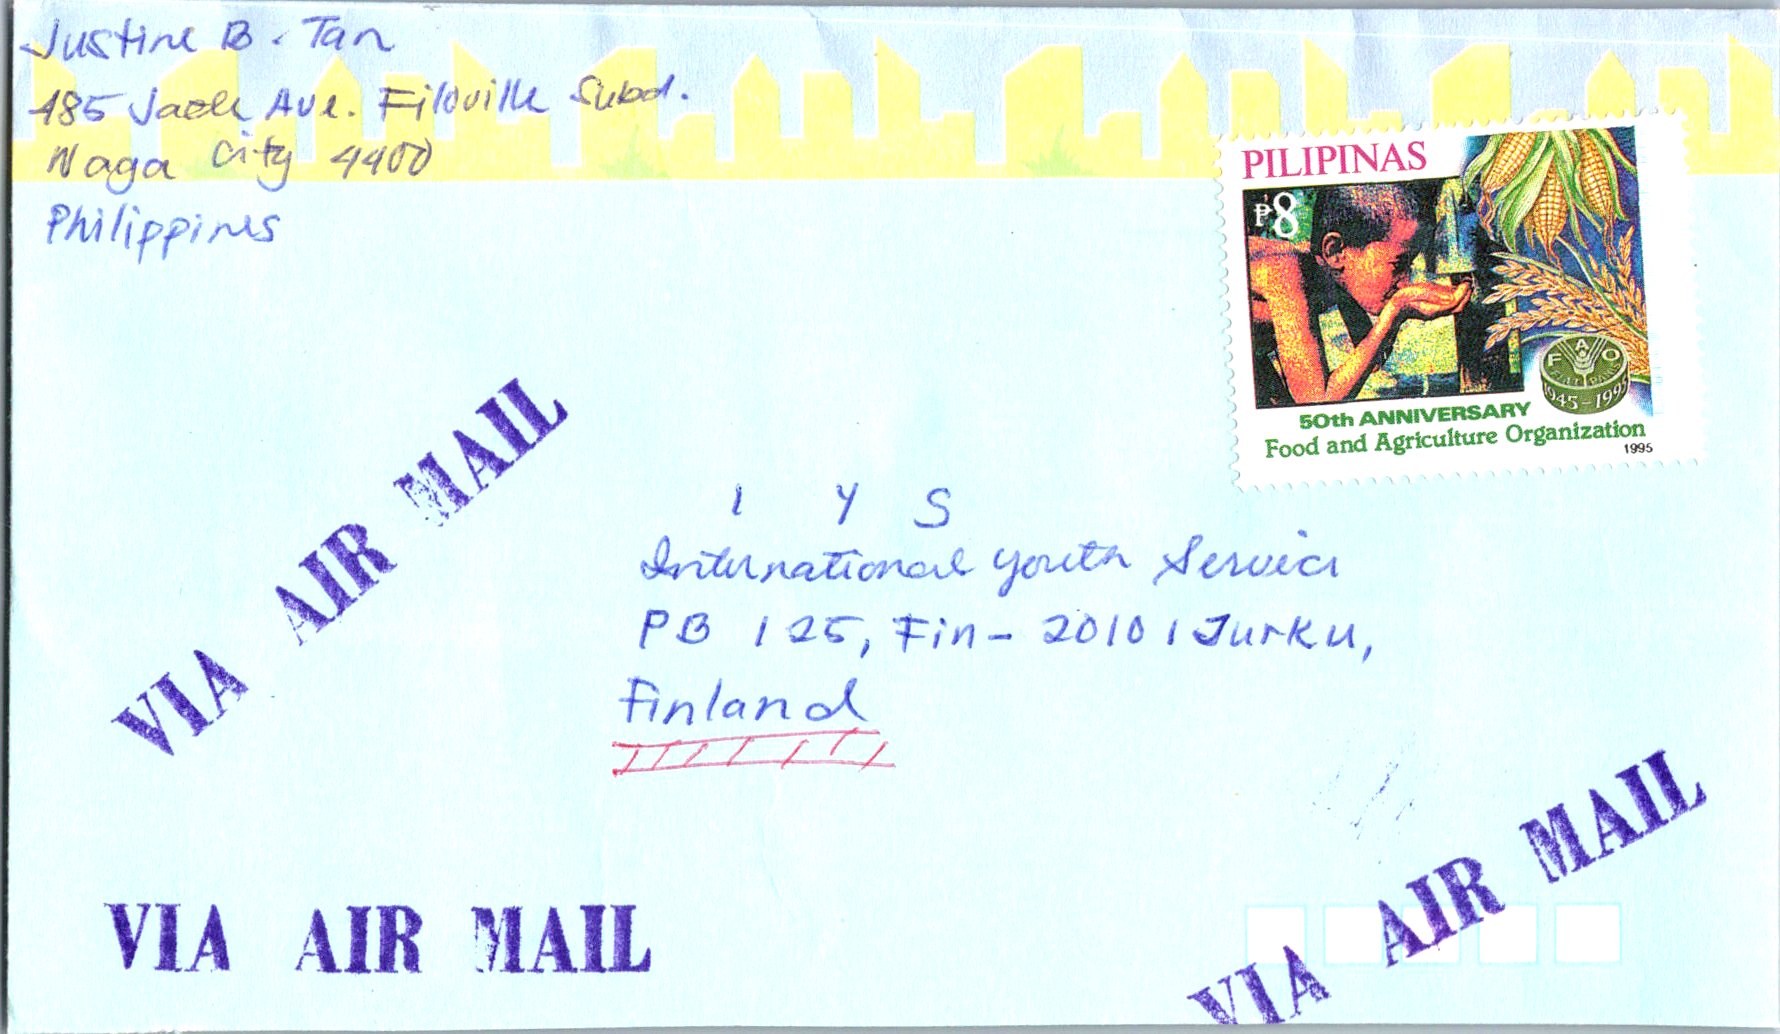 Justine B. Tan
485 Jade Ave. Filoville Subd.
Naga City 4400
Philippines
PILIPINAS
₱8
F A O
FIAT PANIS
1945-1995
50th ANNIVERSARY
Food and Agriculture Organization
1995
I Y S
International Youth Service
PB 125, Fin- 20101 Turku,
Finland
VIA AIR MAIL
VIA AIR MAIL
VIA AIR MAIL